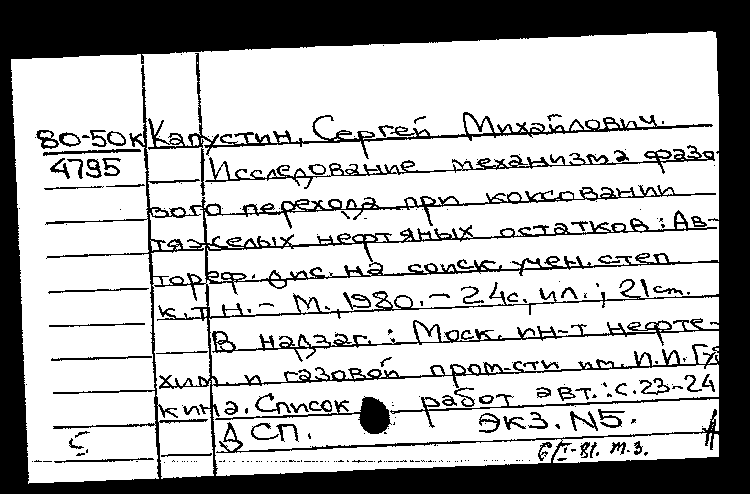 80-50к Капустин, Сергей Михайлович.
4795 Исследование механизма фазо-
вого перехода при коксовании
тяжелых нефтяных остатков: Ав-
тореф. дис. на соиск. учен. степ.
к.т.н. - М., 1980. - 24с., ил.; 21см.
В надзаг.: Моск. ин-т нефте-
хим. и газовой пром-сти им. И.И. Гу
кина. Список работ авт.: с. 23-24
ДСП. Экз. N5.
6/I-81. т.з.